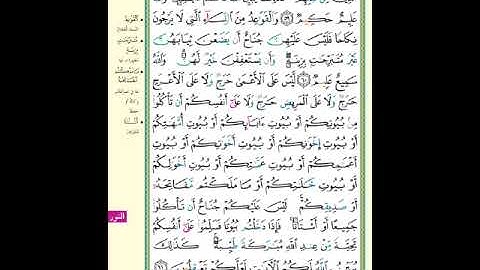 عَلِيمٌ حَكِيمٌ ۝٥٩ وَالْقَوَاعِدُ مِنَ النِّسَاءِ الَّتِي لَا يَرْجُونَ
نِكَاحًا فَلَيْسَ عَلَيْهِنَّ جُنَاحٌ أَن يَضَعْنَ ثِيَابَهُنَّ
غَيْرَ مُتَبَرِّجَٰتٍ بِزِينَةٍ وَأَن يَسْتَعْفِفْنَ خَيْرٌ لَّهُنَّ وَاللَّهُ
سَمِيعٌ عَلِيمٌ ۝٦٠ لَّيْسَ عَلَى الْأَعْمَىٰ حَرَجٌ وَلَا عَلَى الْأَعْرَجِ
حَرَجٌ وَلَا عَلَى الْمَرِيضِ حَرَجٌ وَلَا عَلَىٰ أَنفُسِكُمْ أَن تَأْكُلُوا
مِن بُيُوتِكُمْ أَوْ بُيُوتِ ءَابَائِكُمْ أَوْ بُيُوتِ أُمَّهَٰتِكُمْ
أَوْ بُيُوتِ إِخْوَٰنِكُمْ أَوْ بُيُوتِ أَخَوَٰتِكُمْ أَوْ بُيُوتِ
أَعْمَٰمِكُمْ أَوْ بُيُوتِ عَمَّٰتِكُمْ أَوْ بُيُوتِ أَخْوَٰلِكُمْ
أَوْ بُيُوتِ خَٰلَٰتِكُمْ أَوْ مَا مَلَكْتُم مَّفَاتِحَهُ
أَوْ صَدِيقِكُمْ لَيْسَ عَلَيْكُمْ جُنَاحٌ أَن تَأْكُلُوا
جَمِيعًا أَوْ أَشْتَاتًا فَإِذَا دَخَلْتُم بُيُوتًا فَسَلِّمُوا عَلَىٰ أَنفُسِكُمْ
تَحِيَّةً مِّنْ عِندِ اللَّهِ مُبَٰرَكَةً طَيِّبَةً كَذَٰلِكَ
يُبَيِّنُ اللَّهُ لَكُمُ الْأَيَٰتِ لَعَلَّكُمْ تَعْقِلُونَ ۝٦١
النور